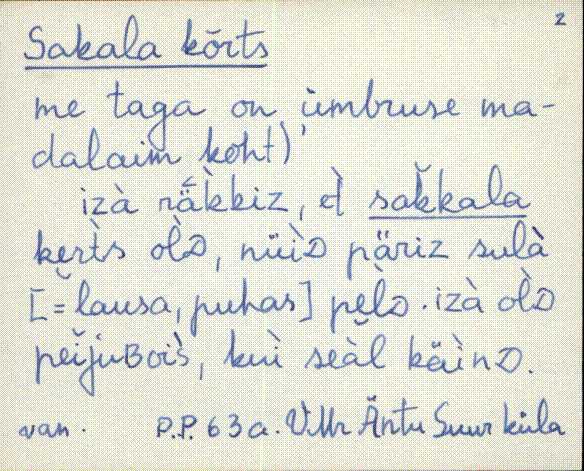 2
Sakala kõrts
me taga on ümbruse ma-
dalaim koht)
izà räkkiz, èt sakkala
kerts olD, nüiD päriz sulà
[= lausa, puhas] pèlD. izà olD
peijuBois, kui seàl käinD.
van. P.P. 63 a. VMr Äntu Suurküla